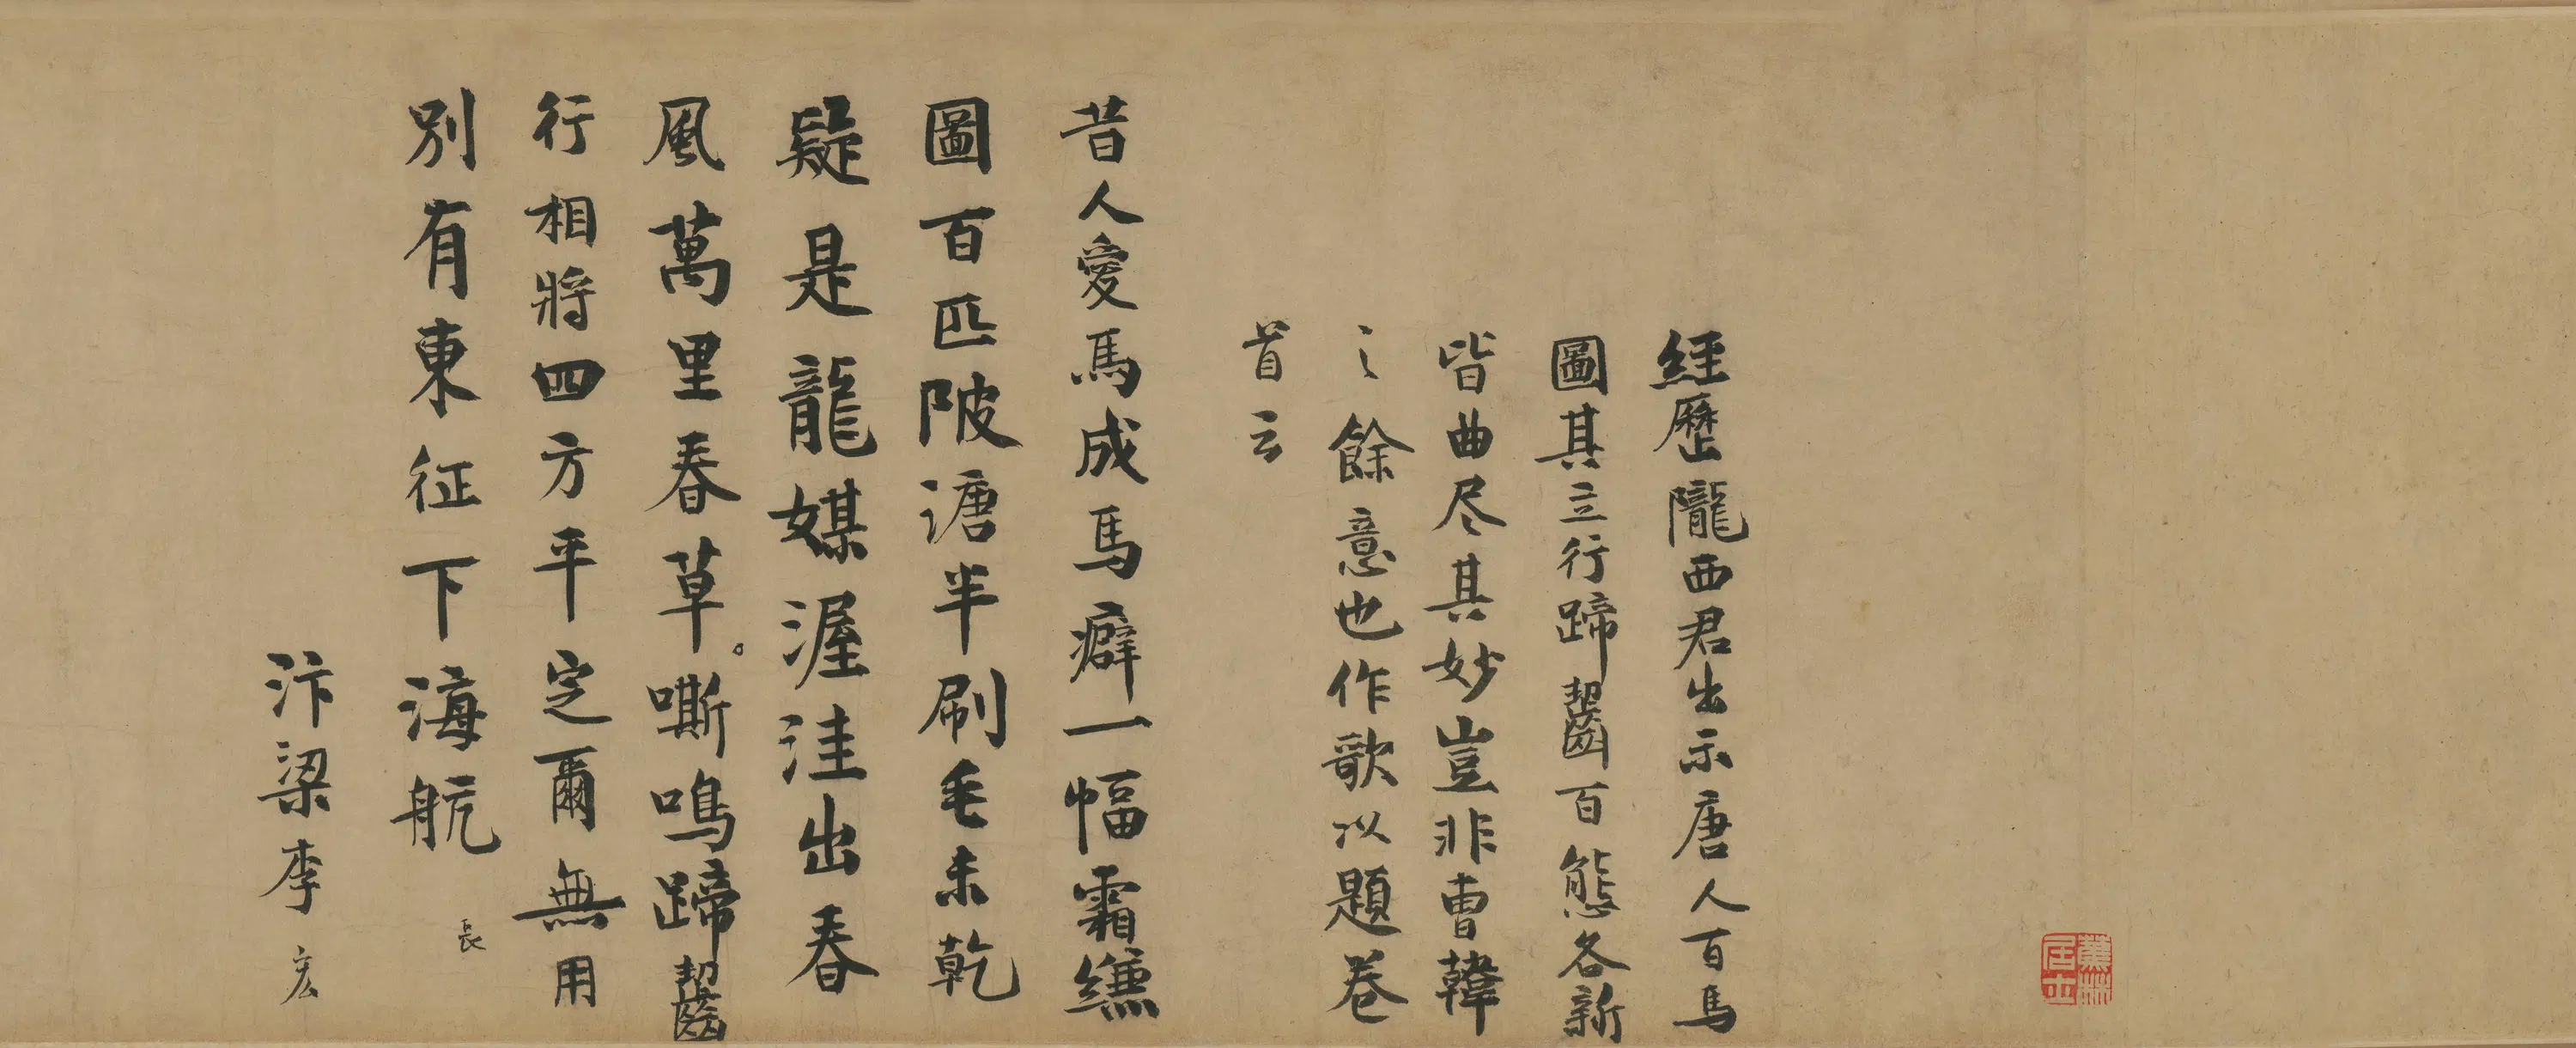 經歷隴西君出示唐人百馬
圖其立行蹄齧百態各新
皆曲尽其妙豈非曹韓
之餘意也作歌以題卷
首云
昔人愛馬成馬癖一幅霜縑
圖百匹陂溏半刷毛未乾
疑是龍媒渥洼出春
風萬里春草嘶鳴蹄齧
行相將四方平定爾無用
別有東征下海航
長
汴梁李宏
薰林
居士